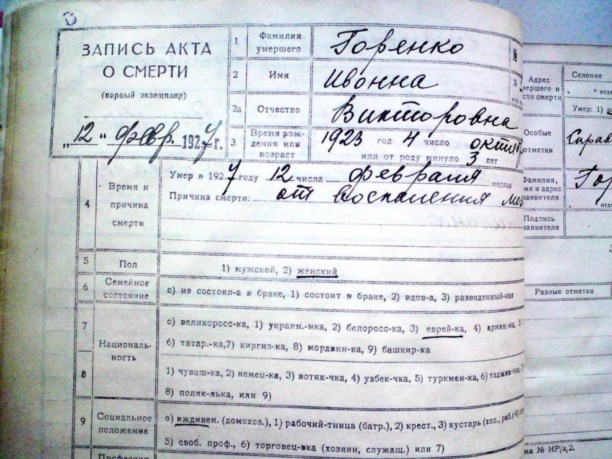 ЗАПИСЬ АКТА
О СМЕРТИ
(первый экземпляр)
„12" февр. 1927 г.
1 Фамилия умершего Горенко
2 Имя Ивонна
2а Отчество Викторовна
3 Время рождения или возраст 1923 год 4 число октяб
или от роду минуло 3 лет
4 Время и причина смерти
Умер в 1927 году 12 числа февраля месяца
Причина смерти: от воспаления
5 Пол 1) мужской, 2) женский
6 Семейное состояние о) не состоял-а в браке, 1) состоит в браке, 2) вдов-а, 3) разведенный-ная
7 Националь-ность
о) великоросс-ка, 1) украин.-нка, 2) белоросс-ка, 3) еврей-ка, 4) армян.-ка, 5
6) татар.-ка, 7) киргиз-ка, 8) мордвин-ка, 9) башкир-ка
8 1) чуваш-ка, 2) немец-ка, 3) вотяк-чка, 4) узбек-чка, 5) туркмен-ка, 6)
8) поляк-лька, или 9)
9 Социальное положение о) иждивен. (домохоз.), 1) рабочий-тница (батр.), 2) крест., 3) кустарь
5) своб. проф., 6) торговец-вка (хозяин, служащ.) или 7)
Профессия
№
Адрес
Селение
Умер: 1)
Особые отметки
Справ
Фамилия, имя и адрес
Гор
Подпись
Разные отметки